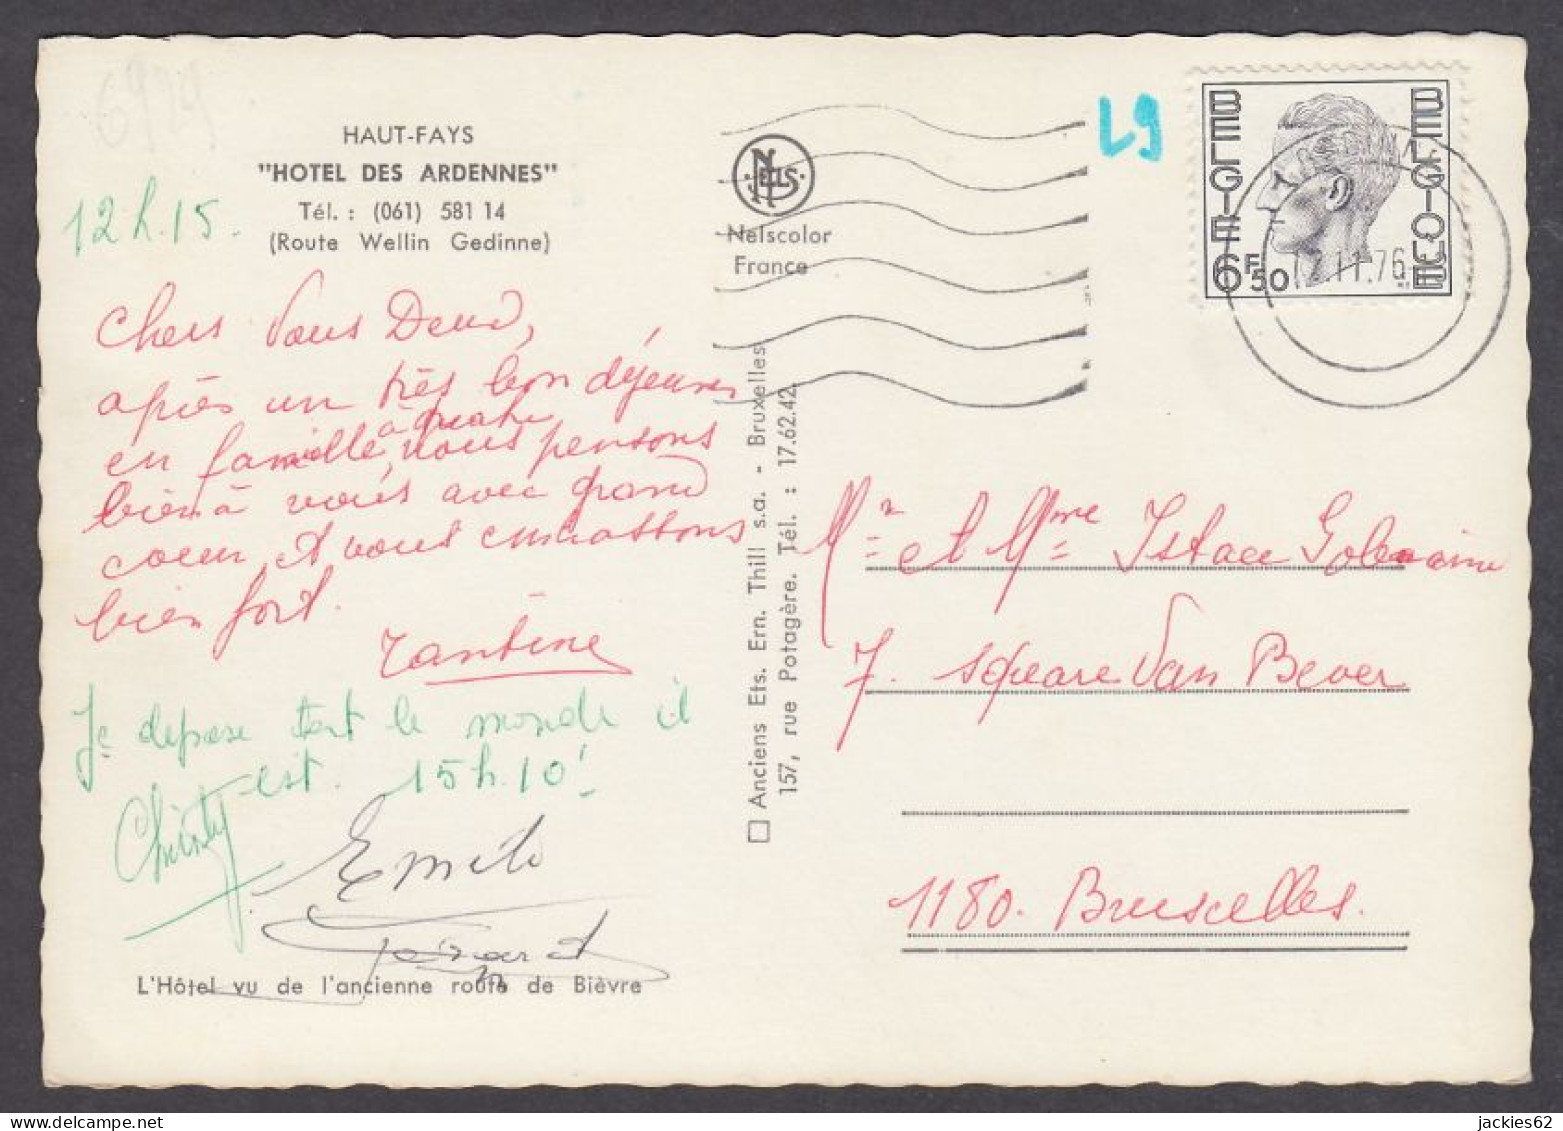 6929
HAUT-FAYS
"HOTEL DES ARDENNES"
Tél. : (061) 581 14
(Route Wellin Gedinne)
12h.15.
Chers Vous Deux,
après un très bon déjeuner
en famille à quatre, nous pensons
bien à vous avec grand
coeur et vous embrassons
bien fort.
Tantine
Je depose tout le monde il
est 15h.10'
Christy
Emile
L'Hôtel vu de l'ancienne route de Bièvre
NELS
Nelscolor
France
Anciens Ets. Ern. Thill s.a. - Bruxelles
157, rue Potagère. Tél. : 17.62.42.
L9
BELGIE BELGIQUE
6F50
.11.76
Mr et Mme Istace
7. square Van Bever
1180. Bruxelles.
jackies62